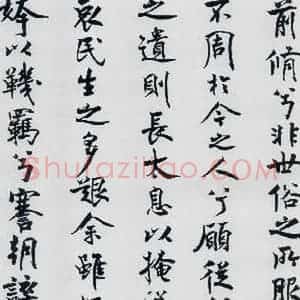 前脩兮非世俗之所服
不周於今之人兮願從
之遺則長太息以掩
哀民生之多艱余雖
姱以鞿羈兮謇朝誶
Shufaziliao.com